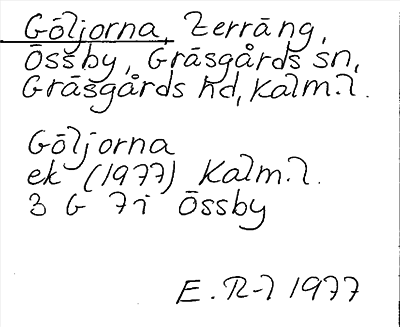 Göljorna, terräng,
Össby, Gräsgårds sn,
Gräsgårds hd, Kalm. l.
Göljorna
ek (1977) Kalm. l.
3 G 7i Össby
E. R-l 1977